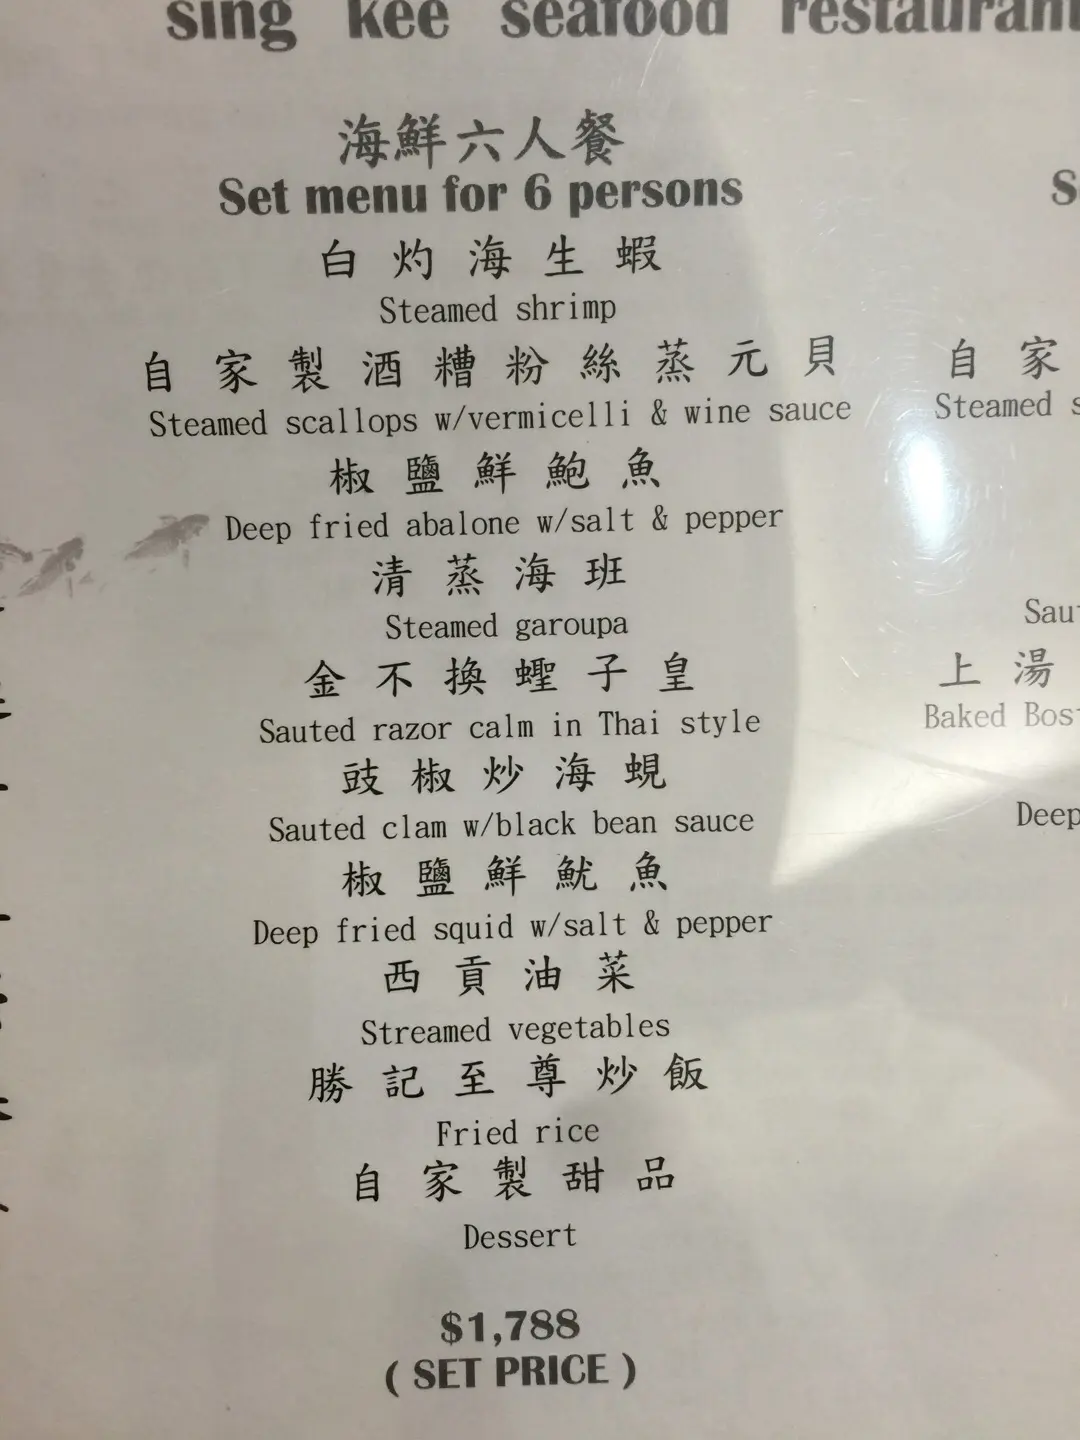 sing kee seafood restaurant
海鮮六人餐
Set menu for 6 persons
白灼海生蝦
Steamed shrimp
自家製酒糟粉絲蒸元貝
Steamed scallops w/vermicelli & wine sauce
椒鹽鮮鮑魚
Deep fried abalone w/salt & pepper
清蒸海班
Steamed garoupa
金不換蟶子皇
Sauted razor calm in Thai style
豉椒炒海蜆
Sauted clam w/black bean sauce
椒鹽鮮魷魚
Deep fried squid w/salt & pepper
西貢油菜
Streamed vegetables
勝記至尊炒飯
Fried rice
自家製甜品
Dessert
$1,788
( SET PRICE )
自家
Steamed
上湯
Baked
Deep